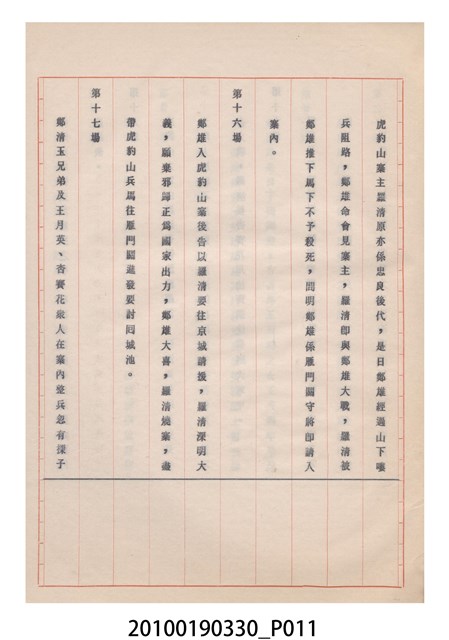 虎豹山寨主羅清原亦係忠良後代，是日鄭雄經過山下嘍
兵阻路，鄭雄命會見寨主，羅清卽與鄭雄大戰，羅清被
鄭雄推下馬下不予殺死，問明鄭雄係雁門關守將卽請入
寨內。
第十六場
鄭雄入虎豹山寨後告以羅清要往京城請援，羅清深明大
義，願棄邪歸正爲國家出力，鄭雄大喜，羅清燒寨，盡
帶虎豹山兵馬往雁門關進發要討囘城池。
第十七場
鄭清玉兄弟及王月英、杏賽花衆人在寨內整兵忽有探子
20100190330_P011